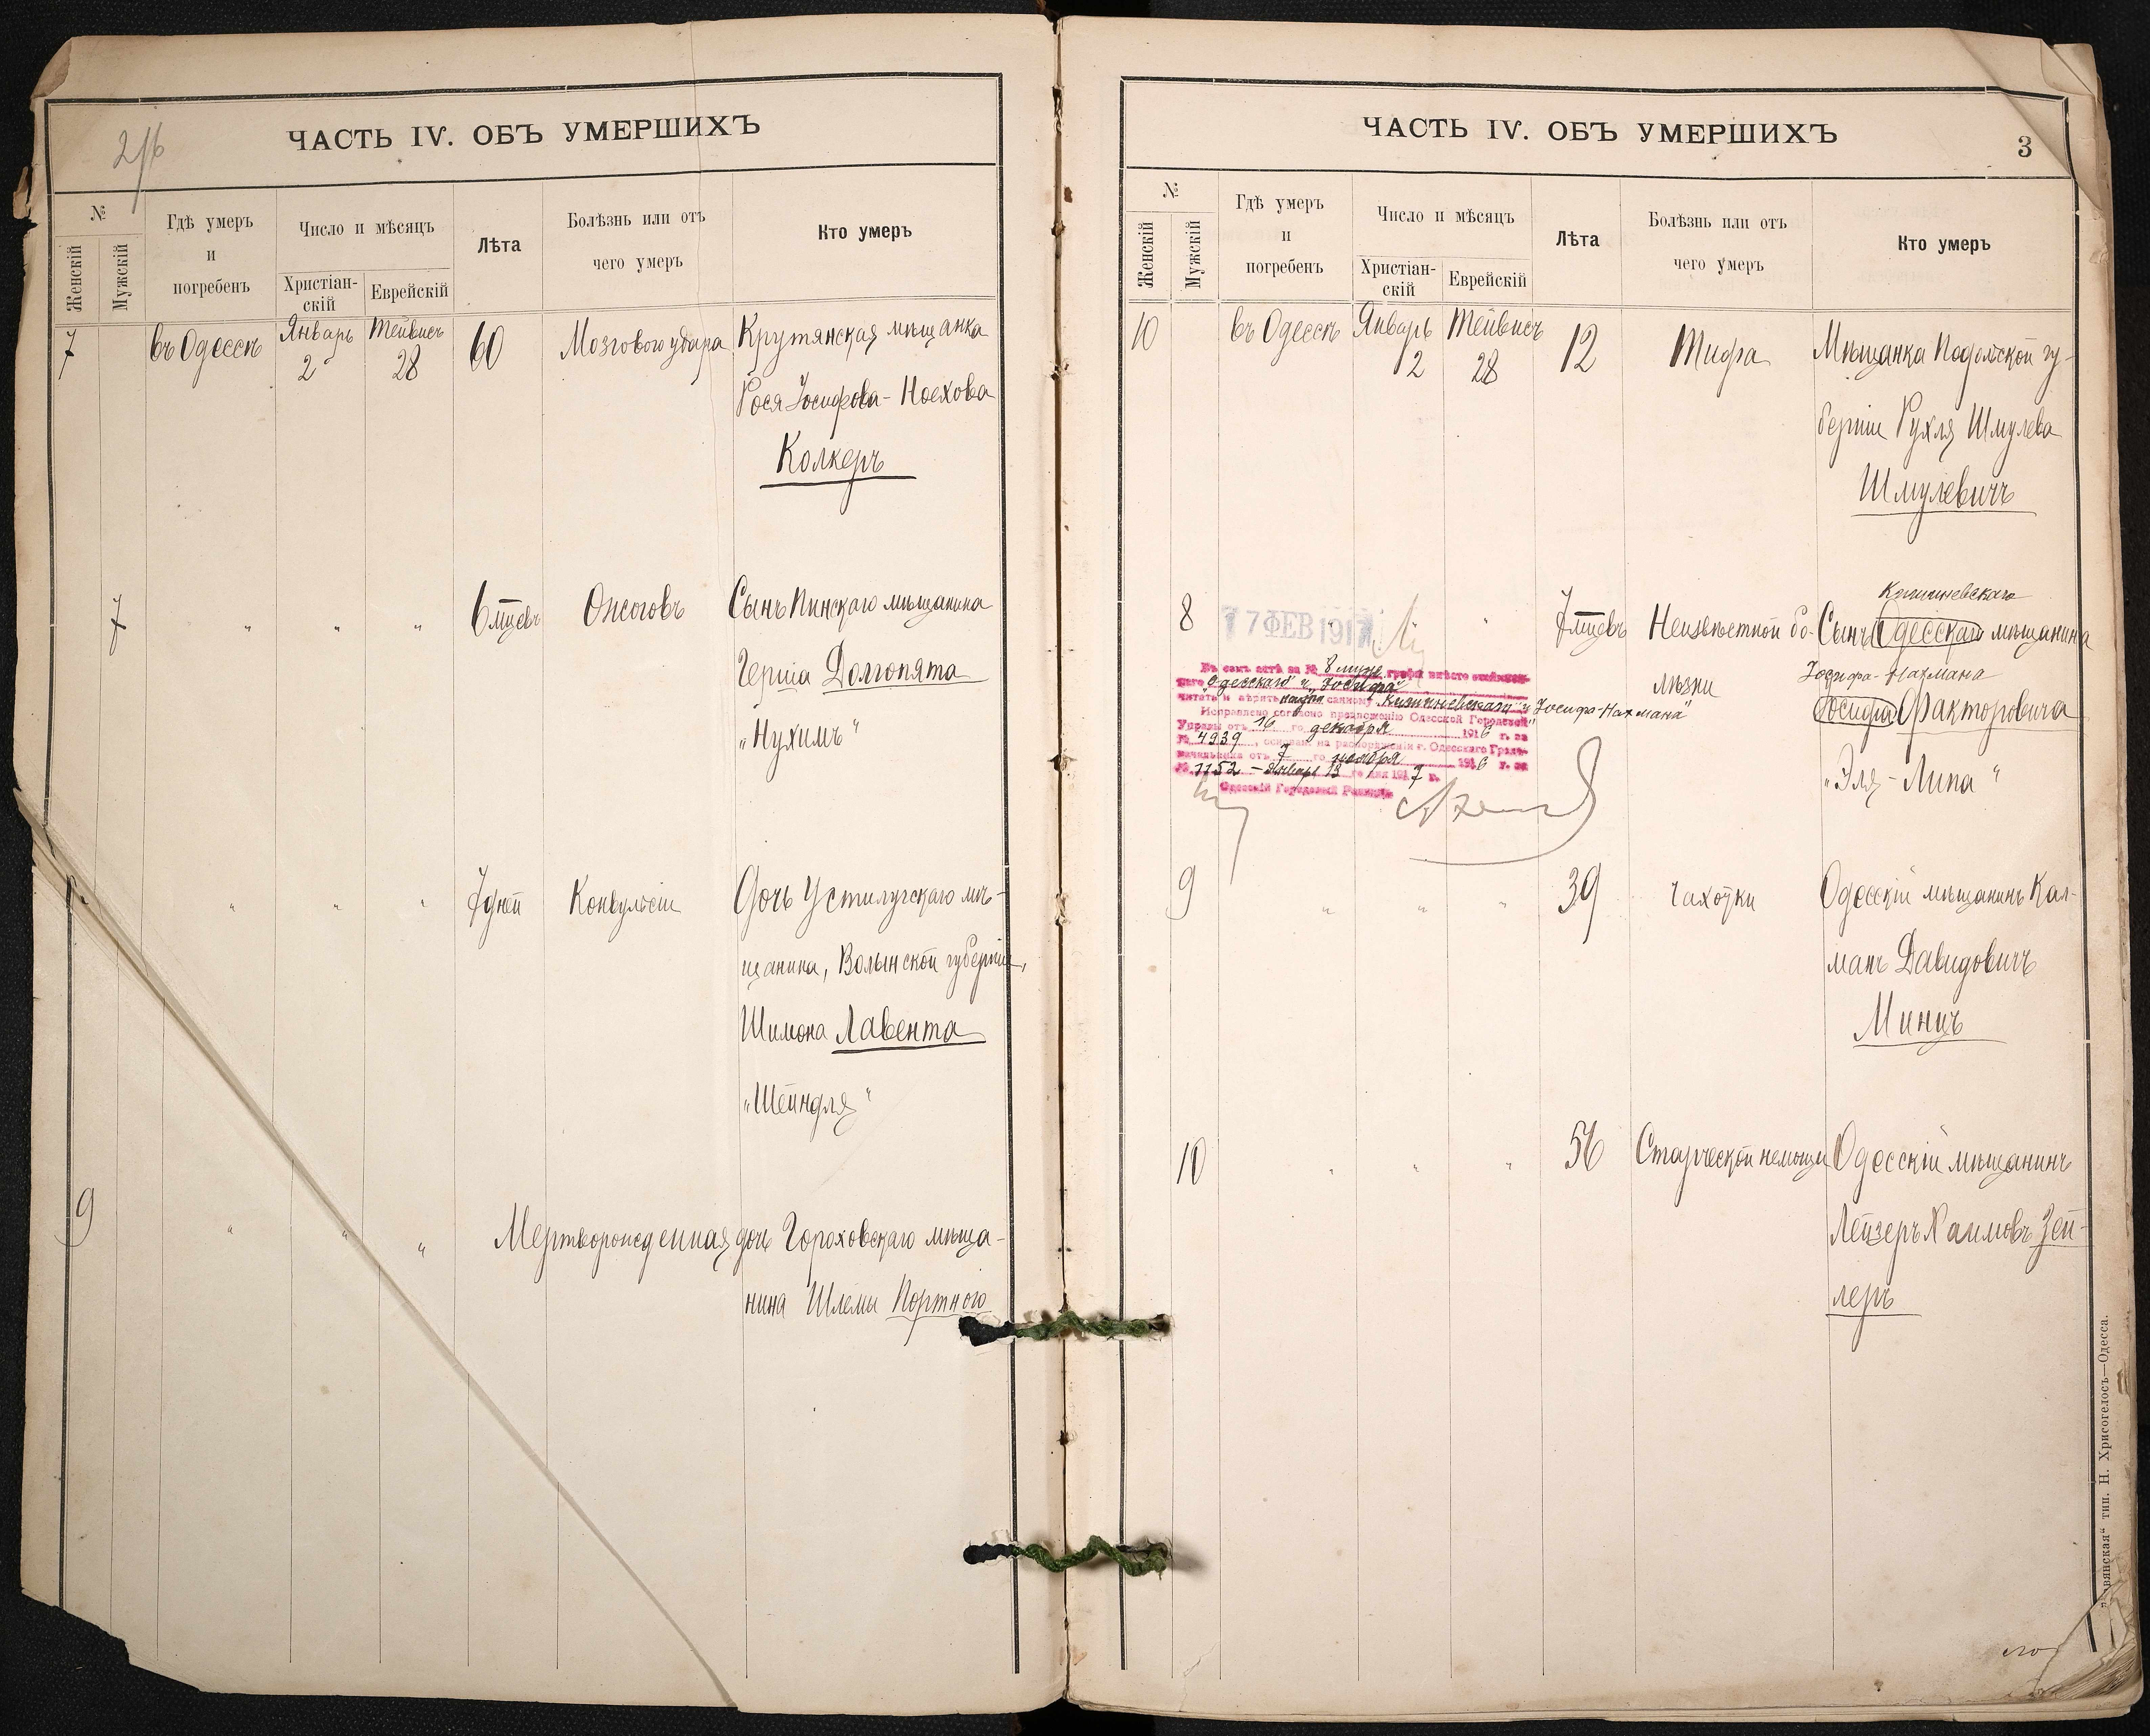 2/б
ЧАСТЬ IV. ОБЪ УМЕРШИХЪ
№
Женскій
Мужскій
Гдѣ умеръ
и
погребенъ
Число и мѣсяцъ
Христіан-
скій
Еврейскій
Лѣта
Болѣзнь или отъ
чего умеръ
Кто умеръ
7 въ Одессѣ Январь 2 Тейвисъ 28 60 Мозгового удара Крутянская мѣщанка
Рося Іосифова-Ноехова
Колкеръ
7 " " " 6 мцевъ Ожоговъ Сынъ Пинскаго мѣщанина
Герша Долгопята
„Нухимъ"
" " " 7 дней Конвульсіи Дочь Устилугскаго мѣ-
щанина, Волынской губерніи,
Шимона Лавента
„Шейндля"
9 " " " Мертворожденная дочь Гороховскаго мѣща-
нина Шлемы Портного
ЧАСТЬ IV. ОБЪ УМЕРШИХЪ
3
№
Женскій
Мужскій
Гдѣ умеръ
и
погребенъ
Число и мѣсяцъ
Христіан-
скій
Еврейскій
Лѣта
Болѣзнь или отъ
чего умеръ
Кто умеръ
10 въ Одессѣ Январь 2 Тейвисъ 28 12 Тифа Мѣщанка Подольской гу-
берніи Рухля Шмулева
Шмулевичъ
Кишиневскаго
8 " " 7 мцевъ Неизвѣстной бо- Сынъ Одесскаго мѣщанина
лѣзни
Іосифа-Нахмана
Іосифа Факторовича
„Эля-Липа"
17 ФЕВ 1917
Въ семъ актѣ за № 8 муж. графы вмѣсто ошибоч-
наго „Одесскаго" и „Іосифа"
читать и вѣрить написанному „Кишиневскаго" и „Іосифа-Нахмана"
Исправлено согласно предложенію Одесской Городской
Управы отъ 16 го декабря 1916 г. за
№ 4939, основан. на распоряженіи г. Одесскаго Градо-
начальника отъ 7 го ноября 1916 г. за
№ 1152 - Января 13 го дня 1917 г.
Одесскій Городовой Раввинъ
9 " " " 39 Чахотки Одесскій мѣщанинъ Кал-
манъ Давидовичъ
Минцъ
10 " " " 56 Старческой немощи Одесскій мѣщанинъ
Лейзеръ Хаимовъ Зей-
леръ
тип. Н. Хрисогелосъ—Одесса.